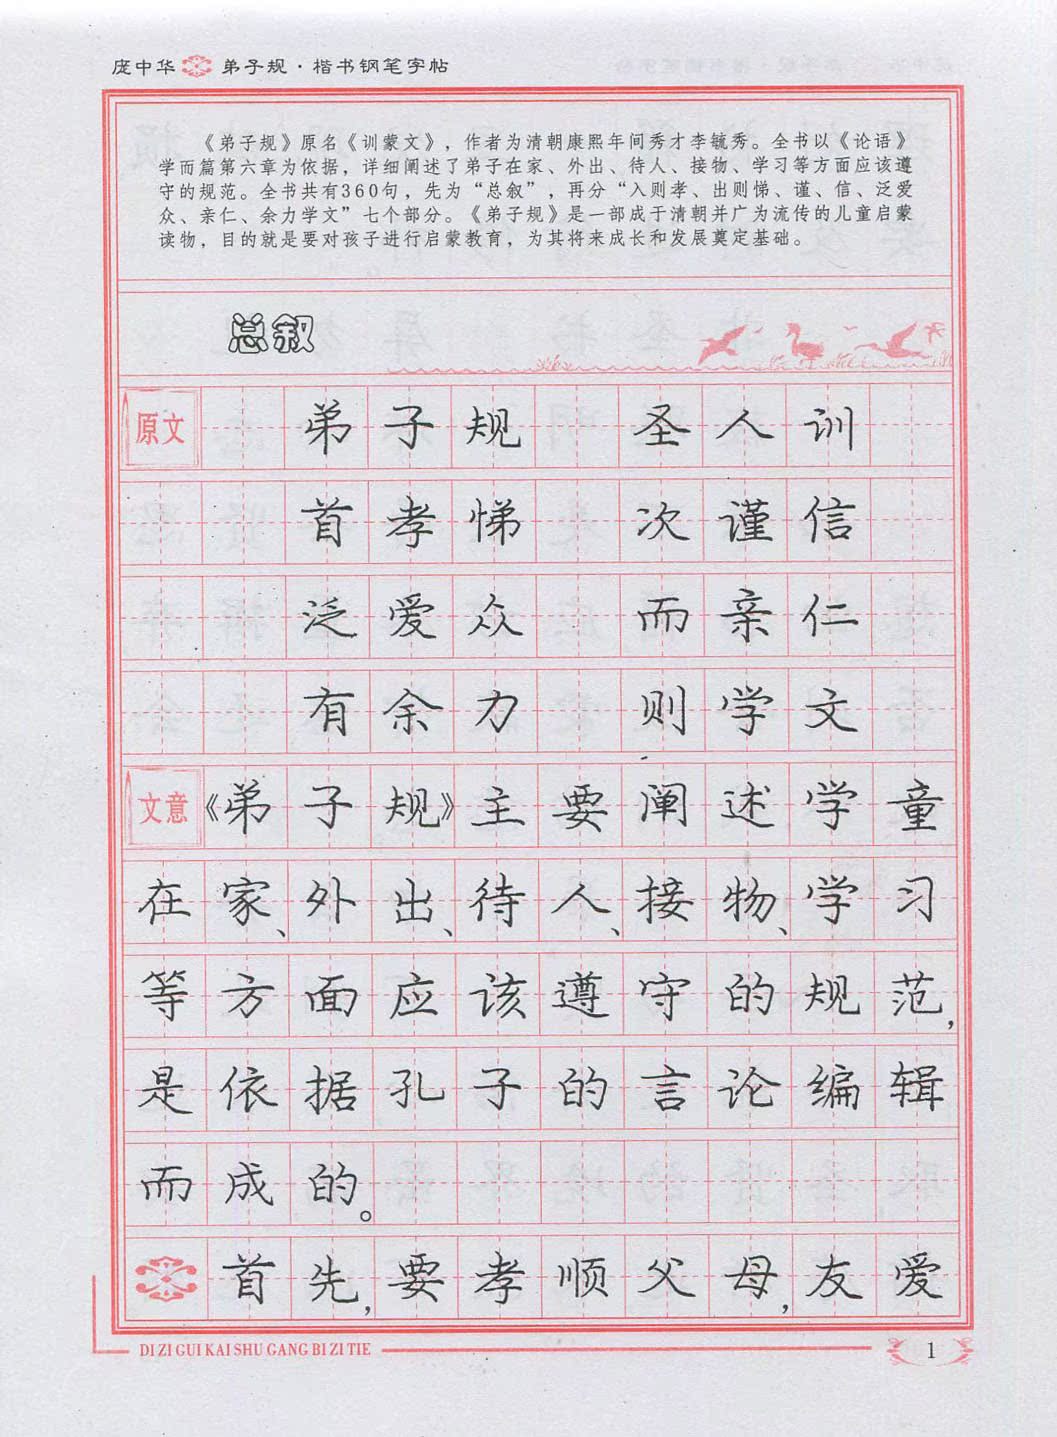 庞中华 弟子规·楷书钢笔字帖
《弟子规》原名《训蒙文》，作者为清朝康熙年间秀才李毓秀。全书以《论语》
学而篇第六章为依据，详细阐述了弟子在家、外出、待人、接物、学习等方面应该遵
守的规范。全书共有360句，先为“总叙”，再分“入则孝、出则悌、谨、信、泛爱
众、亲仁、余力学文”七个部分。《弟子规》是一部成于清朝并广为流传的儿童启蒙
读物，目的就是要对孩子进行启蒙教育，为其将来成长和发展奠定基础。
总叙
原文 弟子规 圣人训
首孝悌 次谨信
泛爱众 而亲仁
有余力 则学文
文意 《弟子规》主要阐述学童
在家、外出、待人、接物、学习
等方面应该遵守的规范，
是依据孔子的言论编辑
而成的。
首先，要孝顺父母，友爱
DI ZI GUI KAI SHU GANG BI ZI TIE
1